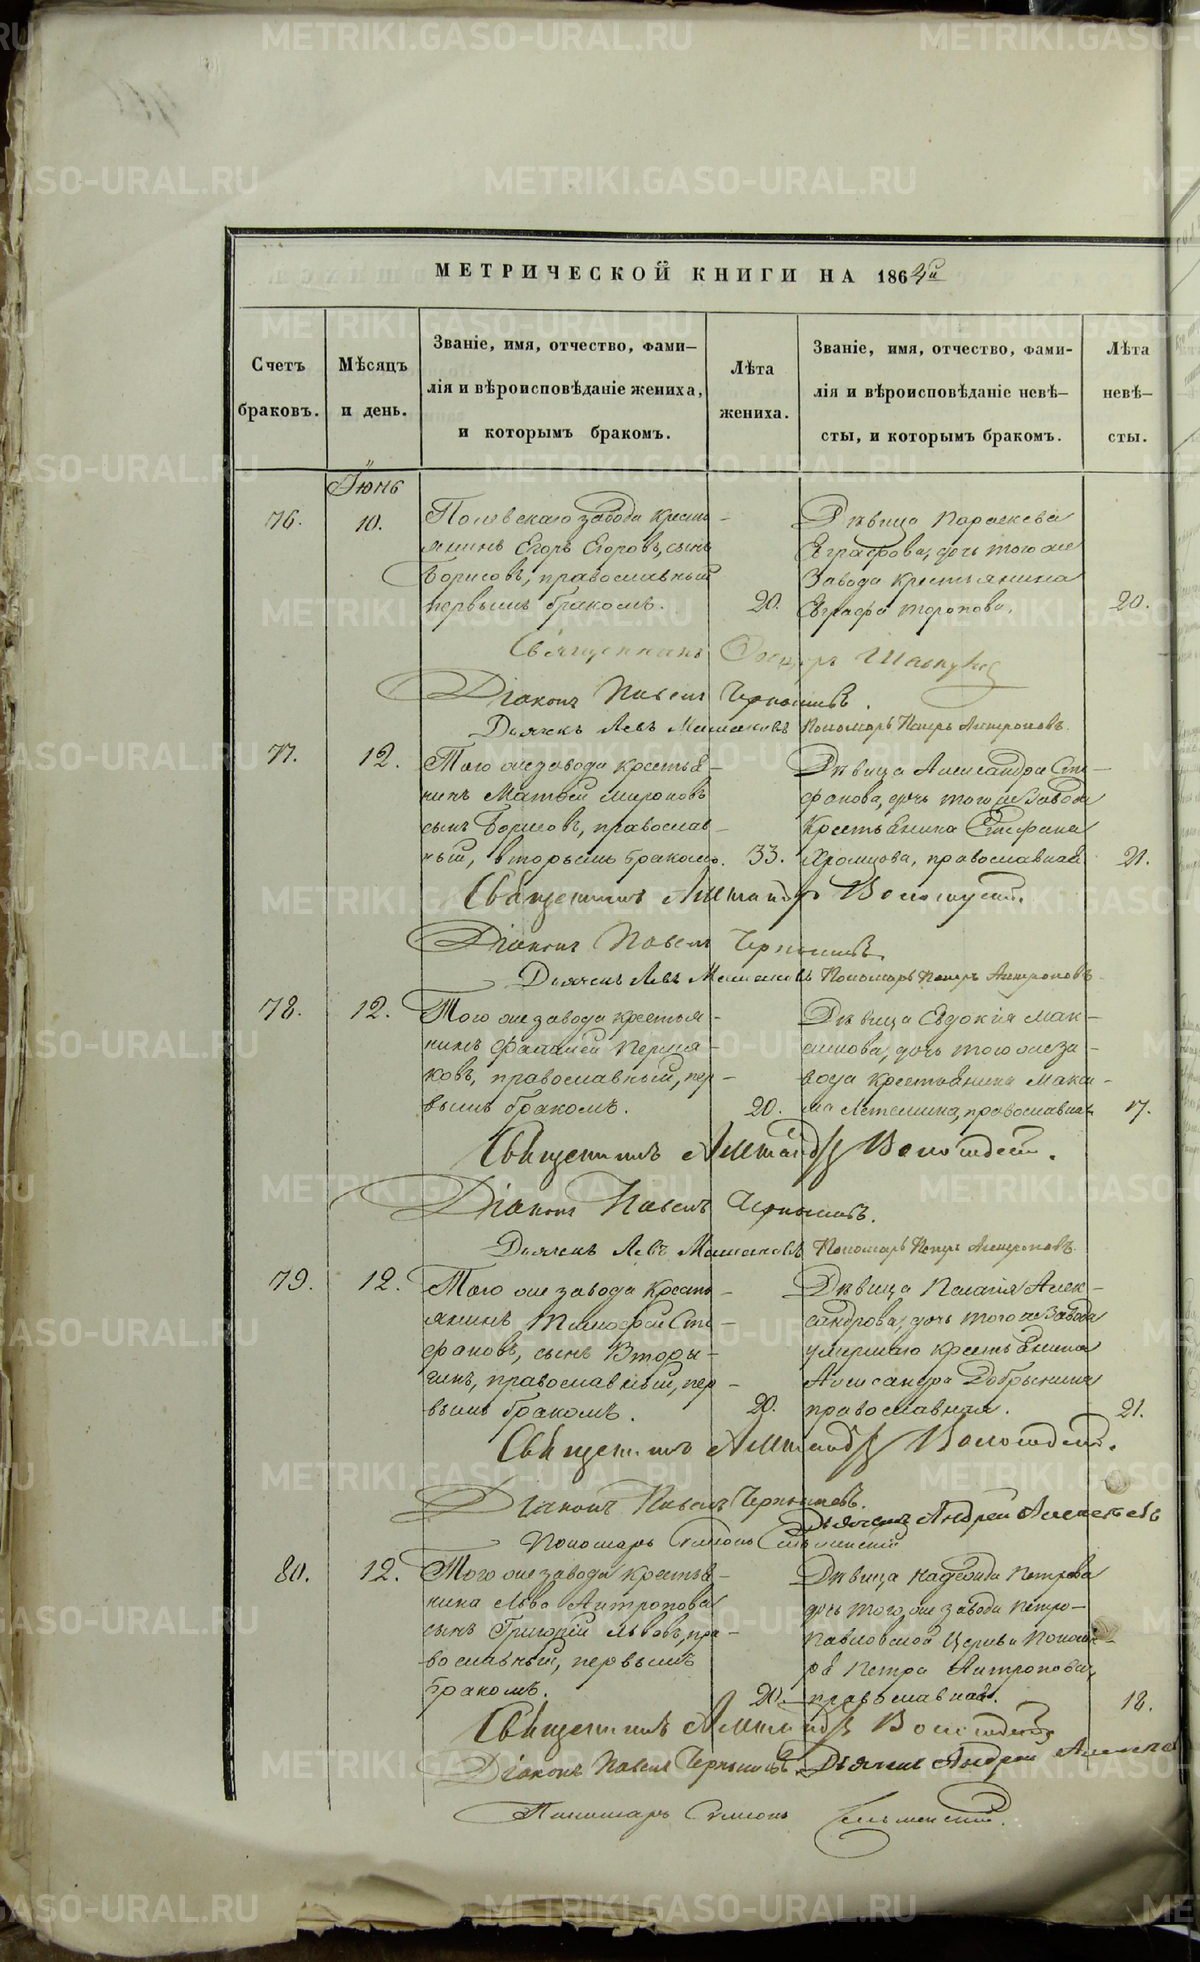 МЕТРИЧЕСКОЙ КНИГИ НА 1864й
Счетъ браковъ.
Мѣсяцъ и день.
Званіе, имя, отчество, фами-
лія и вѣроисповѣданіе жениха,
и которымъ бракомъ.
Лѣта жениха.
Званіе, имя, отчество, фами-
лія и вѣроисповѣданіе невѣ-
сты, и которымъ бракомъ.
Лѣта невѣ-
сты.
Іюнь
76.
10.
Полевскаго завода кресть-
янинъ Егоръ Егоровъ, сынъ
Борисовъ, православный
первымъ бракомъ.
20.
Дѣвица Параскева
Евграфова, дочь того же
Завода крестьянина
Евграфа Торопова.
20.
Священникъ
Діаконъ Павелъ Чернышевъ.
Дьячекъ Левъ Пономарь Петръ Антроповъ.
77.
12.
Того же завода крестья-
нинъ Матвей Мироновъ
сынъ Борисовъ, православ-
ный, вторымъ бракомъ.
33.
Дѣвица Александра Сте-
фанова, дочь того же Завода
Крестьянина Стефана
Хромцова, православная
21.
Священникъ
Діаконъ Павелъ Чернышевъ
Дьячекъ Левъ Пономарь Петръ Антроповъ
78.
12.
Того же завода крестья-
нинъ Фаламей Пермя-
ковъ, православный, пер-
вымъ бракомъ.
20.
Дѣвица Евдокія Мак-
симова, дочь того же за-
вода крестьянина Макси-
ма православная
17.
Священникъ
Діаконъ Павелъ Чернышевъ.
Дьячекъ Левъ Пономарь Петръ Антроповъ.
79.
12.
Того же завода Кресть-
янинъ Тимофей Сте-
фановъ, сынъ Вторы-
гинъ, православный, пер-
вымъ бракомъ.
20.
Дѣвица Пелагія Алек-
сандрова, дочь того же Завода
умершаго крестьянина
Александра Добрынина
православная.
21.
Священникъ
Діаконъ Павелъ Чернышевъ.
Дьячекъ Андрей Алексѣевъ
Пономарь Симонъ
80.
12.
Того же завода крестья-
нина Льва Антропова
сынъ Григорій Львовъ, пра-
вославный, первымъ
бракомъ.
20.
Дѣвица Надежда Петрова
дочь того же завода Петро-
павловской Церкви Понома-
ря Петра Антропова,
православная.
18.
Священникъ
Діаконъ Павелъ Чернышевъ. Дьячекъ Андрей
Пономарь Симонъ
METRIKI.GASO-URAL.RU